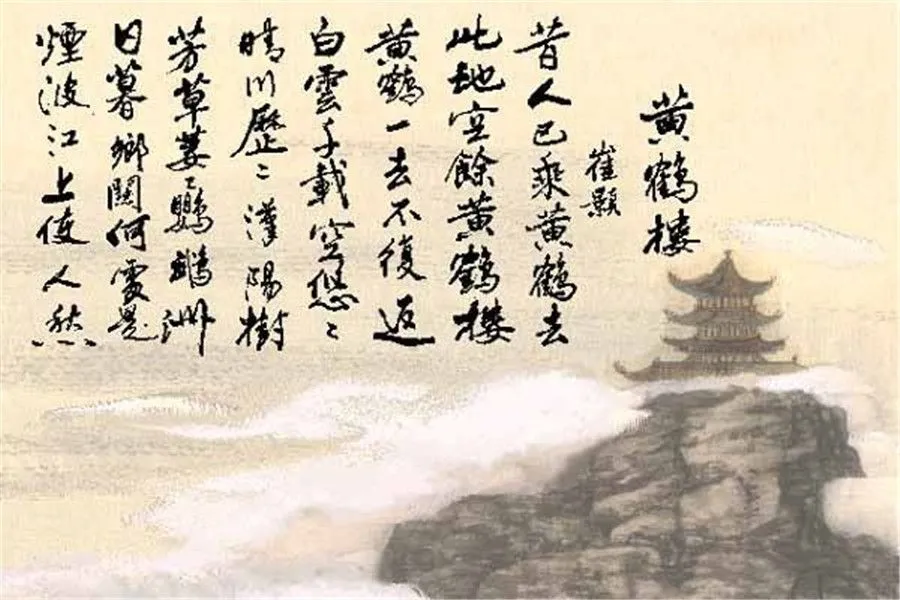 黄鶴樓
崔顥
昔人已乘黄鶴去
此地空餘黄鶴樓
黄鶴一去不復返
白雲千載空悠〻
晴川歷〻漢陽樹
芳草萋〻鸚鵡洲
日暮鄉關何處是
煙波江上使人愁